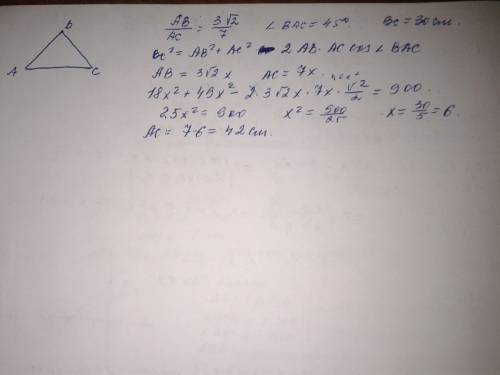 B
A C
AB/AC = 3√2/7 ∠ BAC = 45° BC = 30 см.
BC² = AB² + AC² - 2 AB · AC cos ∠ BAC
AB = 3√2 x AC = 7x
18x² + 49x² - 2 · 3√2 x · 7x · √2/2 = 900.
25x² = 900 x² = 900/25 x = 30/5 = 6
AC = 7·6 = 42 см.